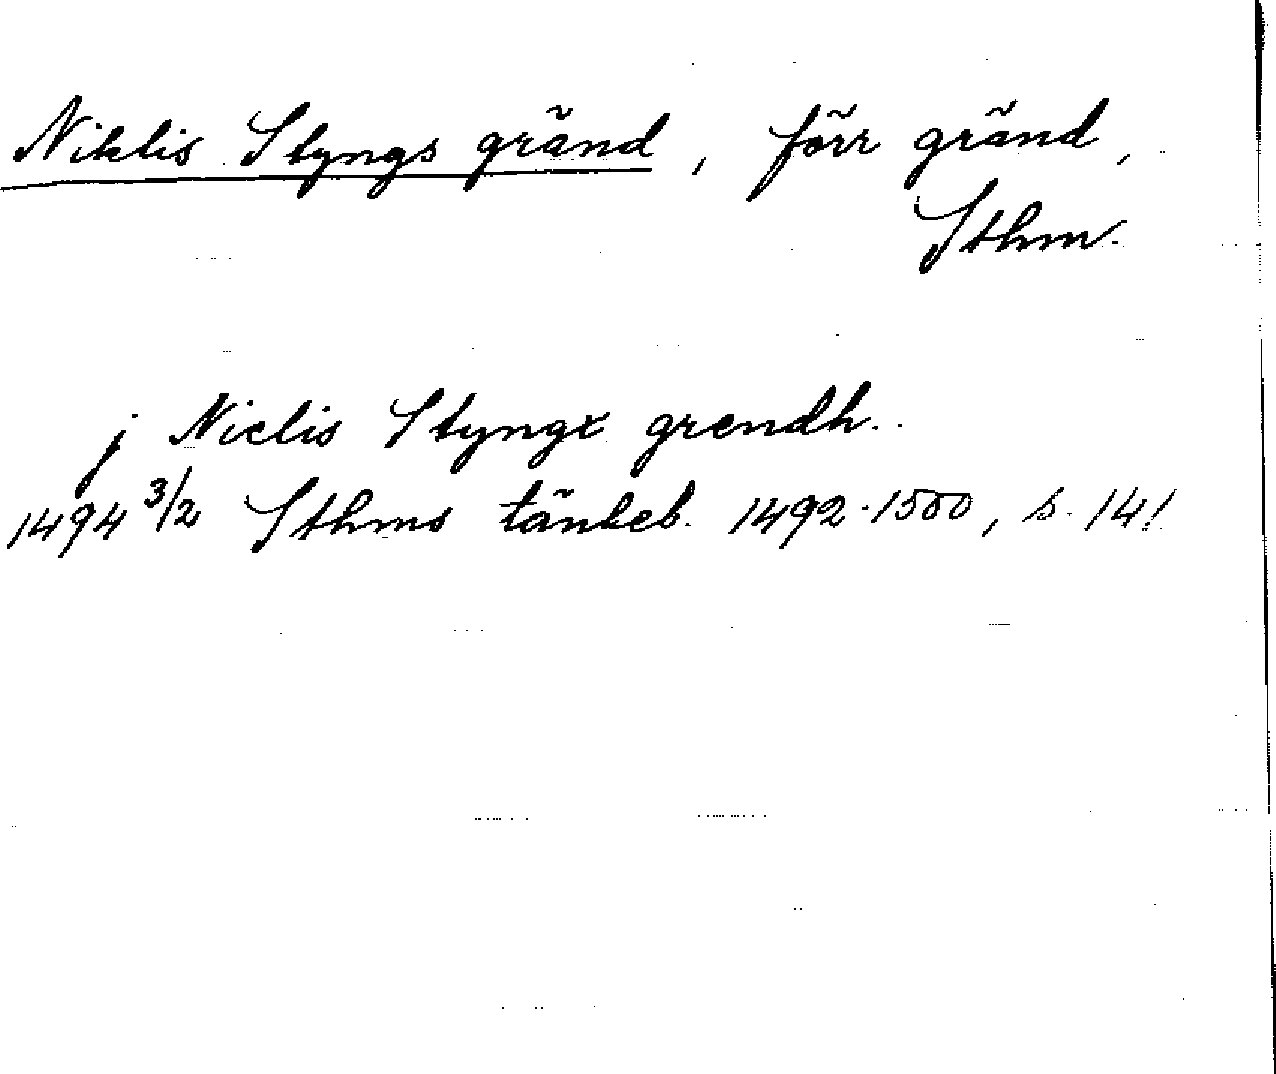 Niklis Styngs gränd, förr gränd,
Sthm.
j Niclis Styngx grendh.
1494 3/2 Sthms tänkeb. 1492-1500, s. 141